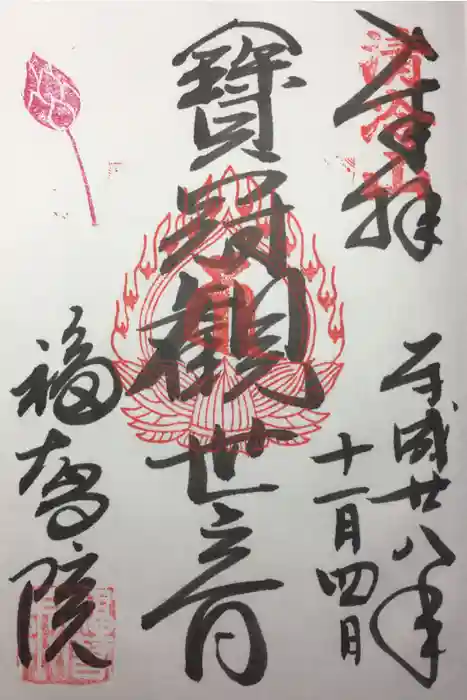 奉拝
平成廿八年
十一月四日
寶冠観世音
福壽院